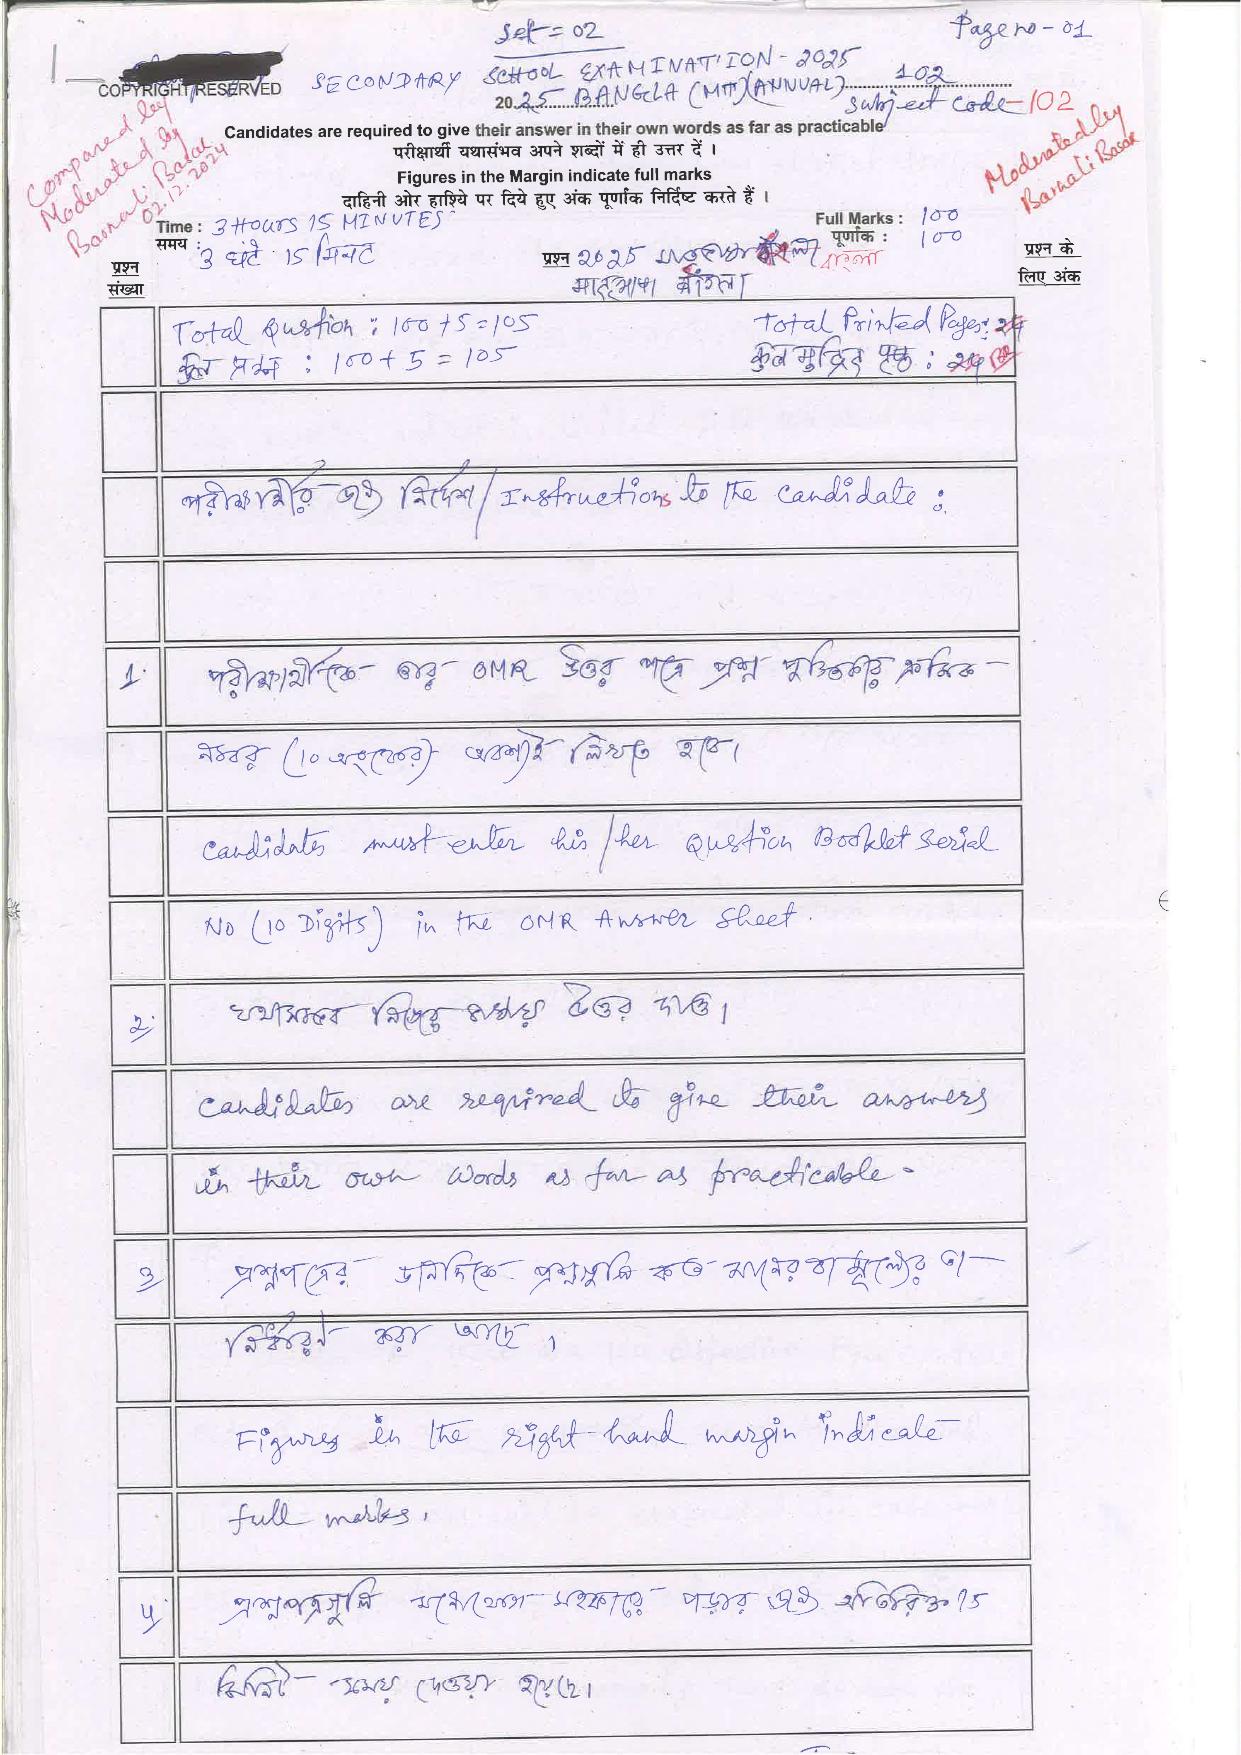 Set = 02
Page no - 01
COPYRIGHT RESERVED
SECONDARY SCHOOL EXAMINATION - 2025
2025 BANGLA (MT) (ANNUAL) 102
Subject code - 102
Compared by
Moderated by
Barnali Basak
02.12.2024
Moderated by
Barnali Basak
Candidates are required to give their answer in their own words as far as practicable
परीक्षार्थी यथासंभव अपने शब्दों में ही उत्तर दें ।
Figures in the Margin indicate full marks
दाहिनी ओर हाशिये पर दिये हुए अंक पूर्णांक निर्दिष्ट करते हैं ।
Time : 3 HOURS 15 MINUTES
Full Marks : 100
समय : 3 घंटे 15 मिनट
पूर्णांक : 100
प्रश्न संख्या
प्रश्न 2025 বাংলা
मातृभाषा बांग्ला
प्रश्न के लिए अंक
Total Qustion : 100 + 5 = 105
Total Printed Pages :
कुल प्रश्न : 100 + 5 = 105
कुल मुद्रित पृष्ठ :
পরীক্ষার্থীর জন্য নির্দেশ / Instructions to the candidate :
1. পরীক্ষার্থীকে তার OMR উত্তর পত্রে প্রশ্ন পুস্তিকার ক্রমিক
নম্বর (10 অঙ্কের) অবশ্যই লিখতে হবে।
Candidates must enter his / her Question Booklet Serial
No (10 Digits) in the OMR Answer Sheet.
২. যথাসম্ভব নিজের ভাষায় উত্তর দাও।
Candidates are required to give their answers
in their own words as far as practicable.
৩ প্রশ্নপত্রের ডানদিকে প্রশ্নগুলি কত মানের বা মূল্যের তা
নির্ধারণ করা আছে।
Figures in the right hand margin indicate
full marks.
প্রশ্নপত্রগুলি মনোযোগ সহকারে পড়ার জন্য অতিরিক্ত 15
মিনিট সময় দেওয়া হয়েছে।